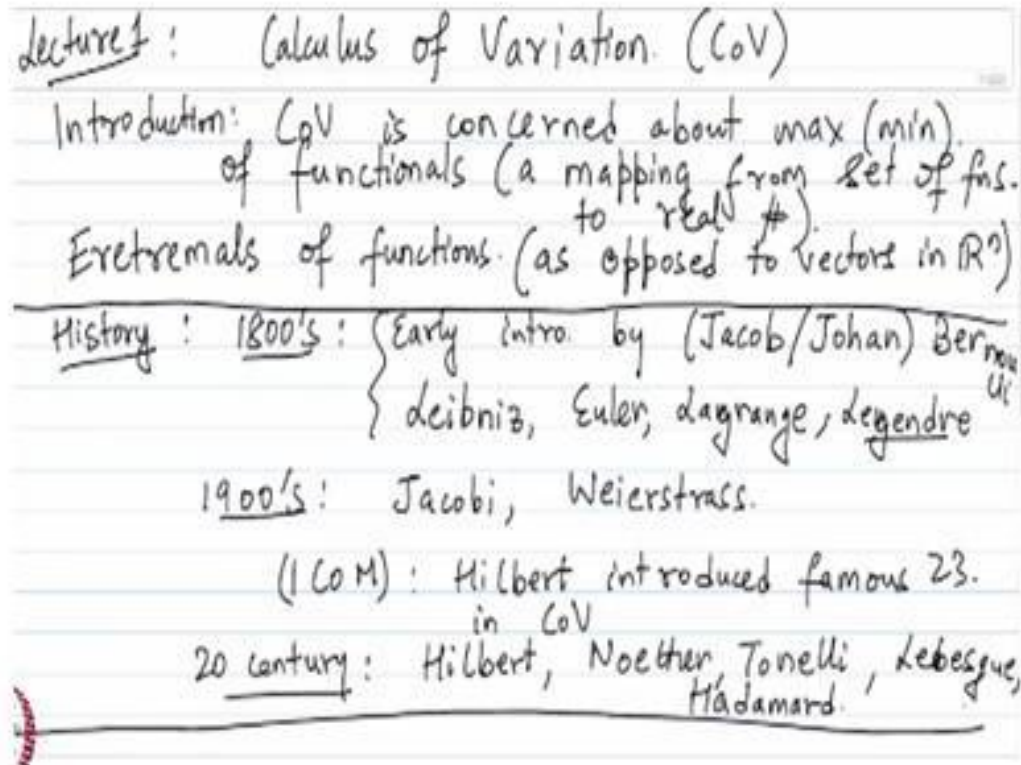 Lecture 1 : Calculus of Variation. (CoV)
Introduction: CoV is concerned about max (min).
of functionals (a mapping from set of fns.
to real #).
Eretremals of functions. (as opposed to vectors in ℝⁿ)
History : 1800's : { Early intro. by (Jacob/Johan) Bernoulli
Leibniz, Euler, Lagrange, Legendre
1900's : Jacobi, Weierstrass.
(ICOM) : Hilbert introduced famous 23.
in CoV
20 century : Hilbert, Noether, Tonelli, Lebesgue,
Hadamard.